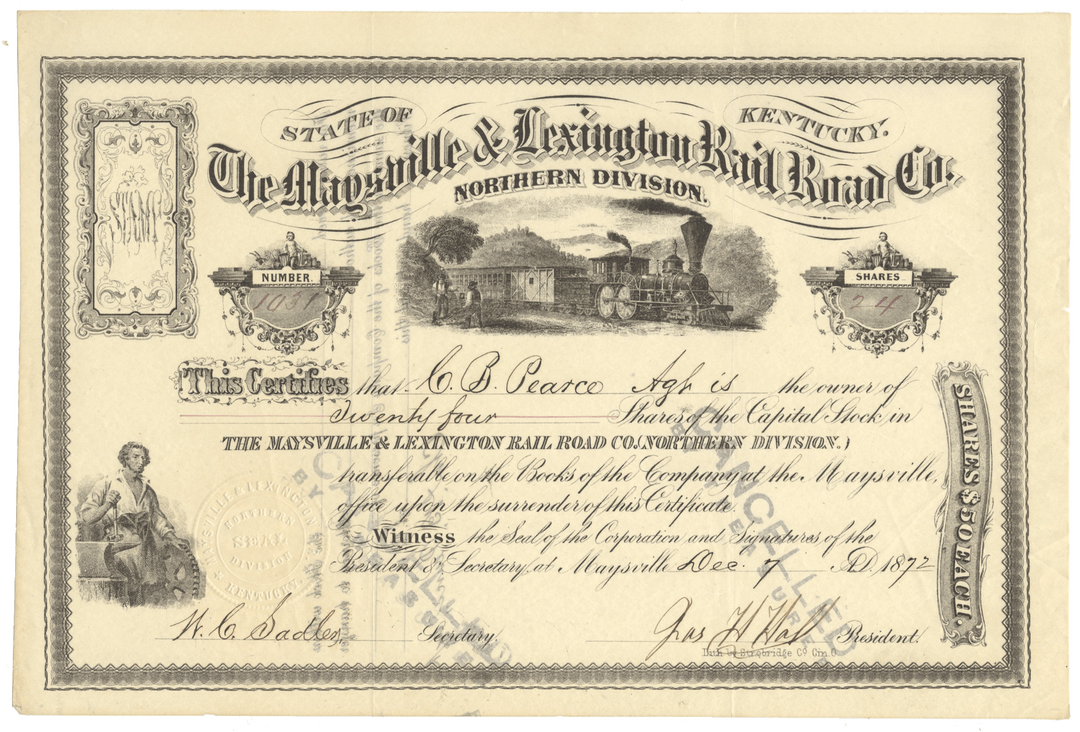 STATE OF KENTUCKY.
The Maysville & Lexington Rail Road Co.
NORTHERN DIVISION.
STOCK
NUMBER.
1031
SHARES
24
This Certifies that C. B. Pearce Agt is the owner of
Twenty four Shares of the Capital Stock in
THE MAYSVILLE & LEXINGTON RAIL ROAD CO. (NORTHERN DIVISION.)
transferable on the Books of the Company at the Maysville,
office upon the surrender of this Certificate.
Witness the Seal of the Corporation and Signatures of the
President & Secretary, at Maysville Dec. 7 A.D. 1872
W. C. Sadler, Secretary.
Jas H Hall President.
Lith by Strobridge Co Cin. O.
SHARES $50 EACH.
MAYSVILLE & LEXINGTON
NORTHERN
SEAL
DIVISION
KENTUCKY.
CANCELLED
BY
CANCELLED